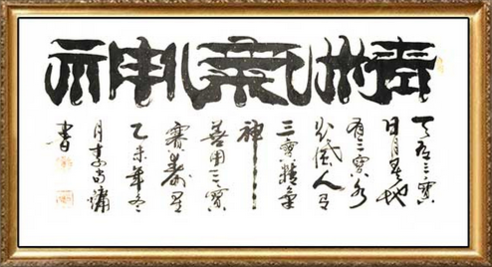 精氣神
天有三寶
日月星地
有三寶水
火風人有
三寶精氣
神
善用三寶
壽星
乙未年冬
月
書